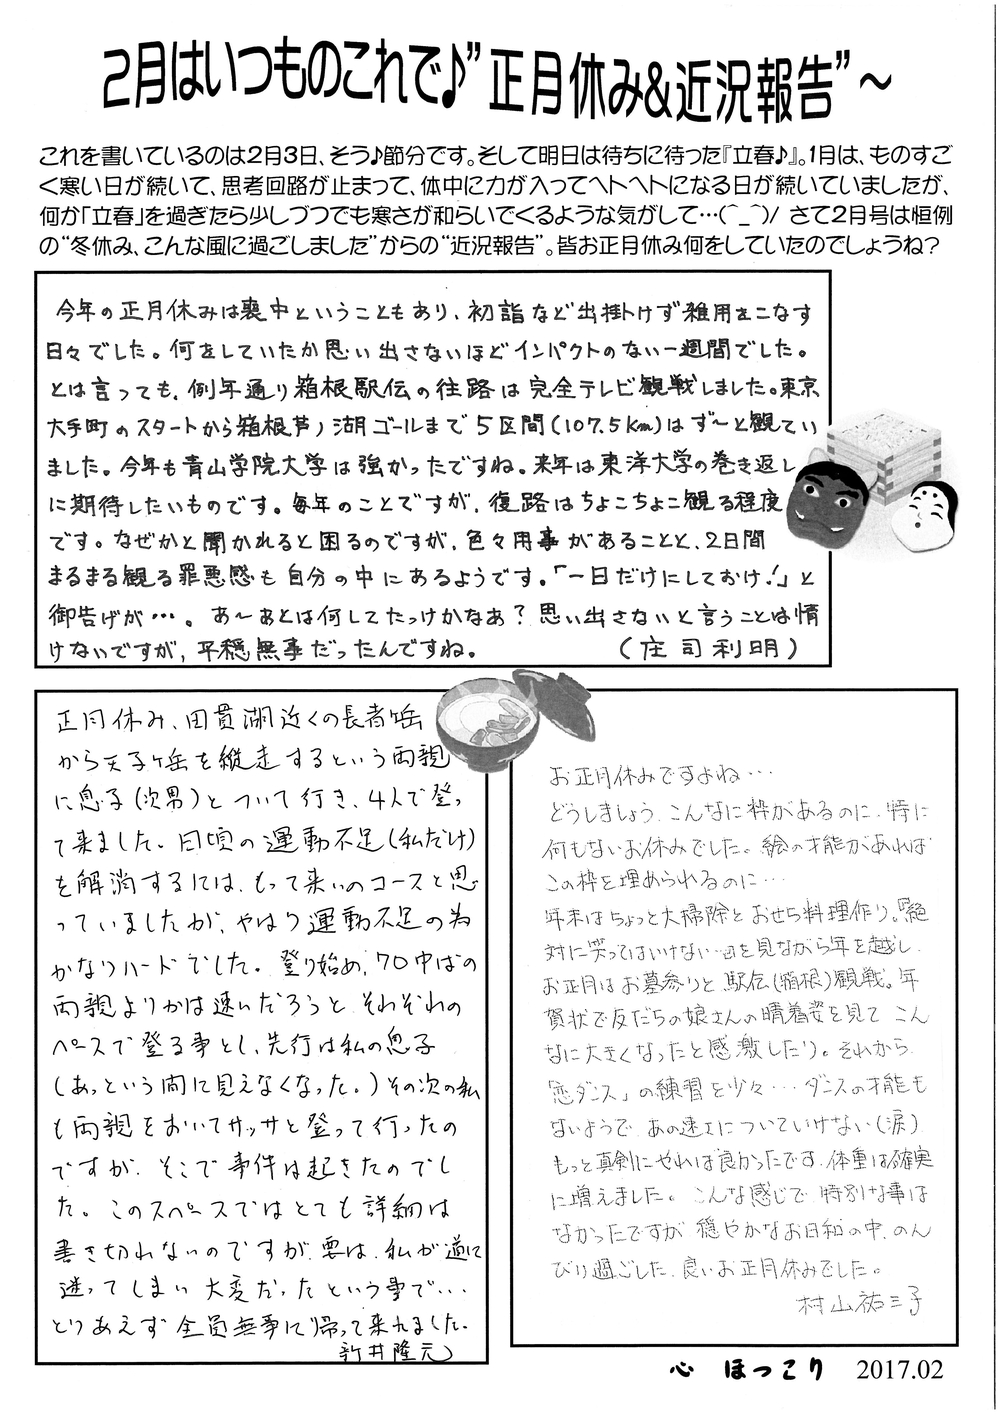 2月はいつものこれで♪"正月休み&近況報告"～
これを書いているのは2月3日、そう♪節分です。そして明日は待ちに待った『立春♪』。1月は、ものすご
く寒い日が続いて、思考回路が止まって、体中に力が入ってヘトヘトになる日が続いていましたが、
何か「立春」を過ぎたら少しづつでも寒さが和らいでくるような気がして…(^_^)/ さて2月号は恒例
の"冬休み、こんな風に過ごしました"からの"近況報告"。皆お正月休み何をしていたのでしょうね?
今年の正月休みは喪中ということもあり、初詣など出掛けず雑用をこなす
日々でした。何をしていたか思い出さないほどインパクトのない一週間でした。
とは言っても、例年通り箱根駅伝の往路は完全テレビ観戦しました。東京
大手町のスタートから箱根芦ノ湖ゴールまで5区間(107.5km)はず～と観てい
ました。今年も青山学院大学は強かったですね。来年は東洋大学の巻き返し
に期待したいものです。毎年のことですが、復路はちょこちょこ観る程度
です。なぜかと聞かれると困るのですが、色々用事があることと、2日間
まるまる観る罪悪感も自分の中にあるようです。「一日だけにしておけ!」と
御告げが…。あ～あとは何してたっけかなあ?思い出さないと言うことは情
けないですが、平穏無事だったんですね。 (庄司利明)
正月休み、田貫湖近くの長者ヶ岳
から天子ヶ岳を縦走するという両親
に息子(次男)とついて行き、4人で登っ
て来ました。日頃の運動不足(私だけ)
を解消するには、もって来いのコースと思
っていましたが、やはり運動不足の為
かなりハードでした。登り始め、70中ばの
両親よりかは速いだろうと それぞれの
ペースで登る事とし、先行は私の息子
(あっという間に見えなくなった。)その次の私
も両親をおいてサッサと登って行ったの
ですが、そこで事件は起きたのでし
た。このスペースではとても詳細は
書き切れないのですが、要は、私が道に
迷ってしまい大変だったという事で…
とりあえず全員無事に帰って来れました。
新井隆元
お正月休みですよね…
どうしましょう、こんなに枠があるのに、特に
何もないお休みでした。絵の才能があれば
この枠を埋められるのに…
年末はちょっと大掃除とおせち料理作り。『絶
対に笑ってはいけない…』を見ながら年を越し、
お正月はお墓参りと駅伝(箱根)観戦。年
賀状で友だちの娘さんの晴着姿を見て こん
なに大きくなったと感激したり。それから、
「恋ダンス」の練習を少々…ダンスの才能も
ないようで、あの速さについていけない(涙)
もっと真剣にやれば良かったです、体重は確実
に増えました。こんな感じで、特別な事は
なかったですが 穏やかなお日和の中、のん
びり過ごした、良いお正月休みでした。
村山祐三子
心 ほっこり 2017.02